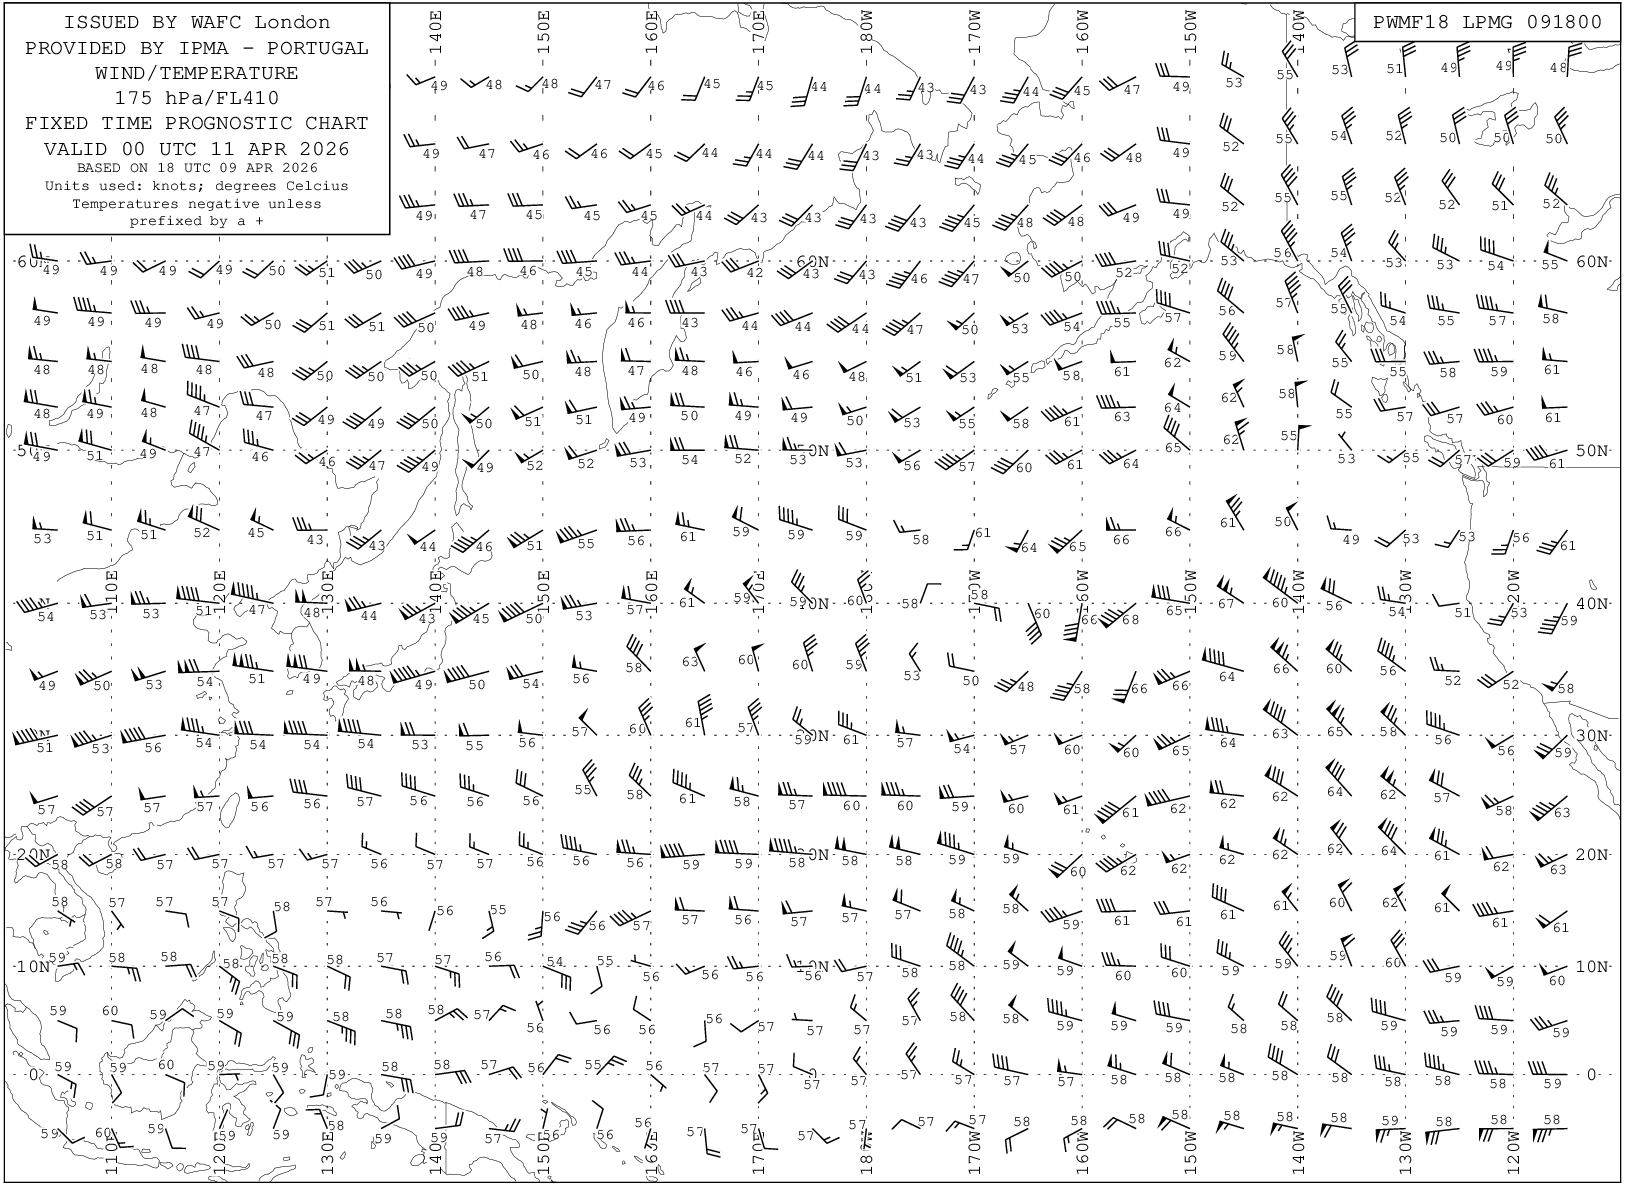 ISSUED BY WAFC London
PROVIDED BY IPMA - PORTUGAL
WIND/TEMPERATURE
175 hPa/FL410
FIXED TIME PROGNOSTIC CHART
VALID 00 UTC 11 APR 2026
BASED ON 18 UTC 09 APR 2026
Units used: knots; degrees Celcius
Temperatures negative unless
prefixed by a +
PWMF18 LPMG 091800
140E 150E 160E 170E 180W 170W 160W 150W 140W
49 48 48 47 46 45 45 44 44 43 43 44 45 47 49 53 55 53 51 49 49 48
49 47 46 46 45 44 44 44 43 43 44 45 46 48 49 52 55 54 52 50 50 50
49 47 45 45 45 44 43 43 43 43 45 48 48 49 49 52 55 55 52 52 51 52
60N 49 49 49 49 50 51 50 49 48 46 45 44 43 42 60N 43 43 46 47 50 50 52 52 53 56 54 53 53 54 55 60N
49 49 49 49 50 51 51 50 49 48 46 46 43 44 44 44 47 50 53 54 55 57 56 57 55 54 55 57 58
48 48 48 48 48 50 50 50 51 50 48 47 48 46 46 48 51 53 55 58 61 62 59 58 55 55 58 59 61
48 49 48 47 47 49 49 50 50 51 51 49 50 49 49 50 53 55 58 61 63 64 62 58 55 57 57 60 61
49 51 49 47 46 46 47 49 49 52 52 53 54 52 53 50N 53 56 57 60 61 64 65 62 55 53 55 57 59 61 50N
53 51 51 52 45 43 43 44 46 51 55 56 61 59 59 59 58 61 64 65 66 66 61 50 49 53 53 56 61
110E 120E 130E 140E 150E 160E 170E 180W 170W 160W 150W 140W 130W 120W
54 53 53 51 47 48 44 43 45 50 53 57 61 59 59 60 58 58 60 66 68 65 67 60 56 54 51 53 59 40N
49 50 53 54 51 49 48 49 50 54 56 58 63 60 60 59 53 50 48 58 66 66 64 66 60 56 52 52 58
51 53 56 54 54 54 54 53 55 56 57 60 61 57 59 61 57 54 57 60 60 65 64 63 65 58 56 56 59 30N
57 57 57 57 56 56 57 56 56 56 55 58 61 58 57 60 60 59 60 61 61 62 62 62 64 62 57 58 63
20N 58 58 57 57 57 57 56 57 57 56 56 56 59 59 58 58 58 59 59 60 62 62 62 62 62 64 61 62 63 20N
58 57 57 57 58 57 56 56 55 56 56 57 57 56 57 57 57 58 58 59 61 61 61 61 60 62 61 61 61
10N 59 58 58 58 58 58 57 57 56 54 55 56 56 56 56 57 58 58 59 59 60 60 59 59 59 60 59 59 60 10N
59 60 59 59 59 58 58 58 57 56 56 56 56 57 57 57 57 58 58 59 59 59 58 58 58 59 59 59 59
0 59 59 60 59 59 59 58 58 57 56 55 56 57 57 57 57 57 57 57 57 58 58 58 58 58 58 58 58 59 0
59 60 59 59 59 58 59 59 57 56 56 56 57 57 57 57 57 57 58 58 58 58 58 58 58 58 58 58 58
110E 120E 130E 140E 150E 160E 170E 180W 170W 160W 150W 140W 130W 120W